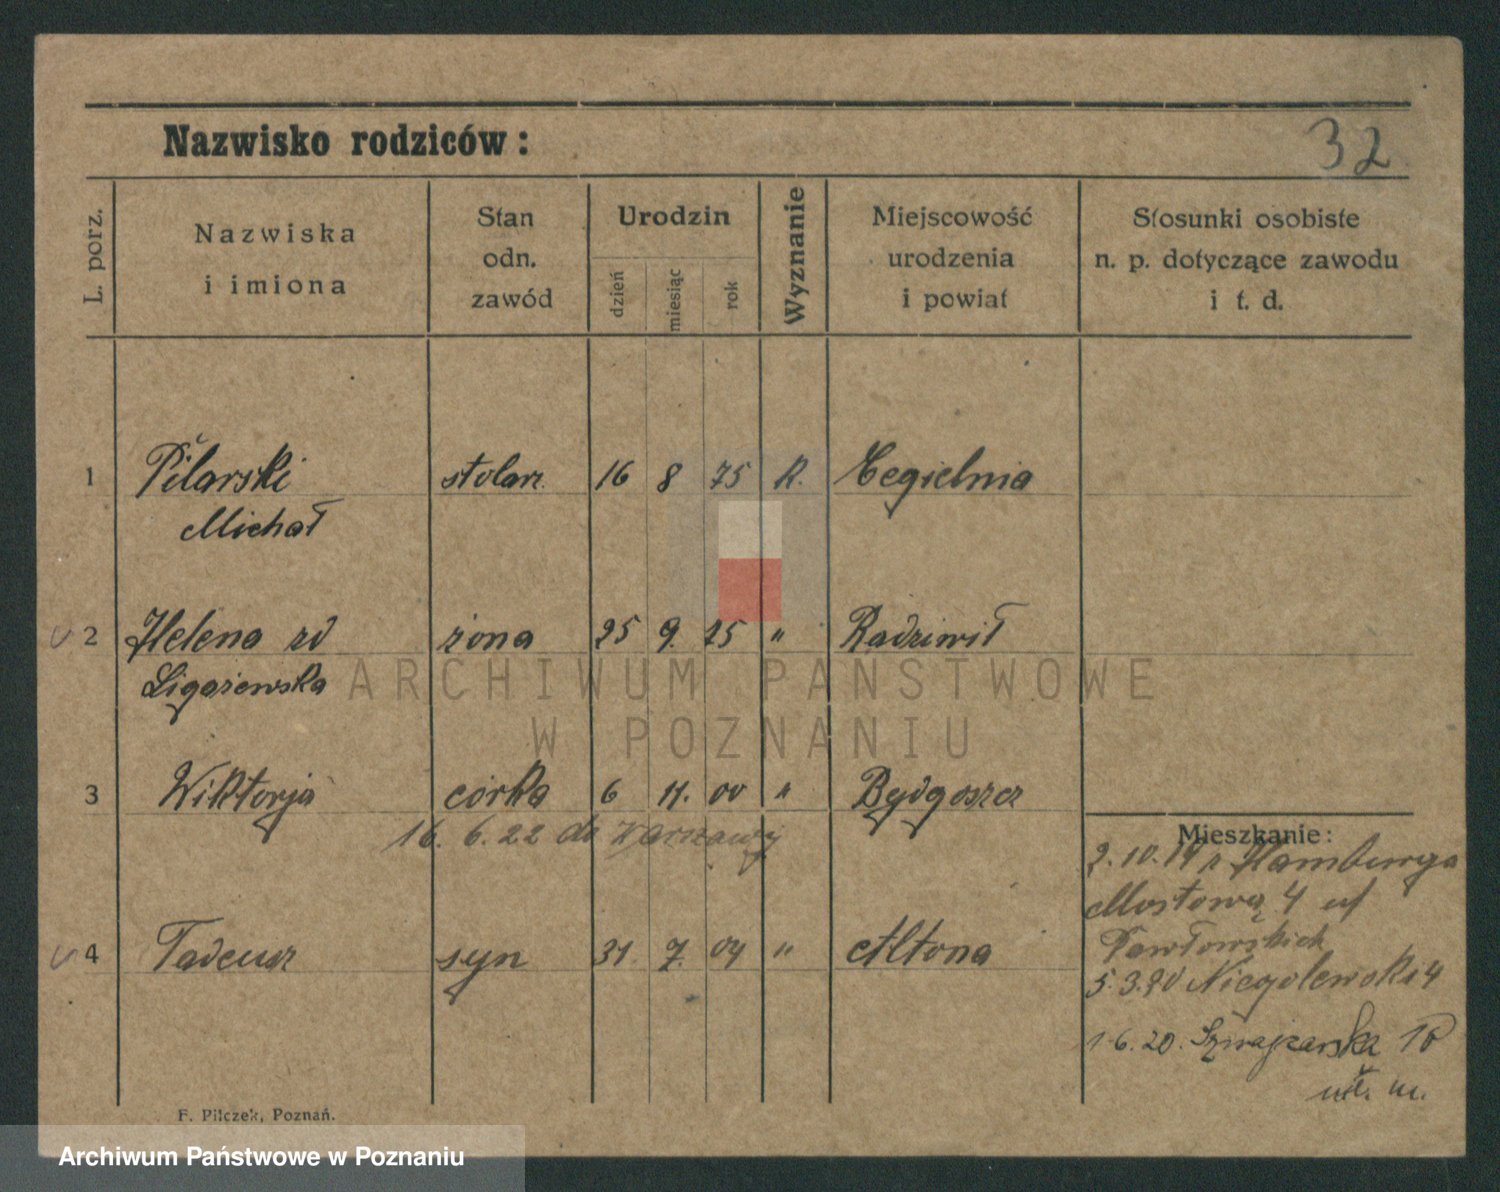 Nazwisko rodziców:
32
L. porz.
Nazwiska
i imiona
Stan
odn.
zawód
Urodzin
dzień
miesiąc
rok
Wyznanie
Miejscowość
urodzenia
i powiat
Stosunki osobiste
n. p. dotyczące zawodu
i t. d.
1 Pilarski stolarz. 16 8 75 R. Cegielnia
Michał
2 Helena rd żona 25 9. 75 " Radziwił
Ligażewska
ARCHIWUM PAŃSTWOWE
W POZNANIU
3 Wiktorja córka 6 11. 00 " Bydgoszcz
16. 6. 22 do Warszawy
4 Tadeusz syn 31. 7. 04 " Altona
Mieszkanie:
2.10.19 z Hamburga
Mostowa 4 u
Pawłowskich
5.3.20 Niegolewski 4
1.6.20. Szwajcarska 18
wł. m.
F. Pilczek, Poznań.
Archiwum Państwowe w Poznaniu